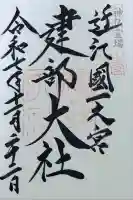 近江國一之宮
建部大社
令和 年十一月 日